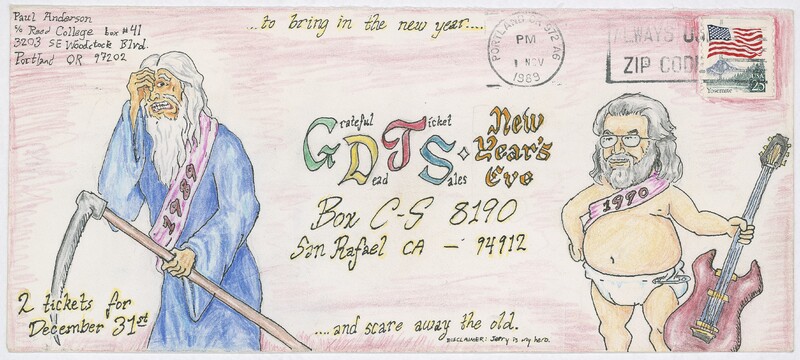 Paul Anderson
c/o Reed College box #41
3203 SE Woodstock Blvd.
Portland OR 97202
...to bring in the new year....
PORTLAND OR 972 A6
PM
1 NOV
1989
ALWAYS US
ZIP CODE
Yosemite
USA
25
1989
Grateful Ticket
Dead Sales
New
Year's
Eve
Box C-S 8190
San Rafael CA - 94912
1990
2 tickets for
December 31st
....and scare away the old.
DISCLAIMER: Jerry is my hero.